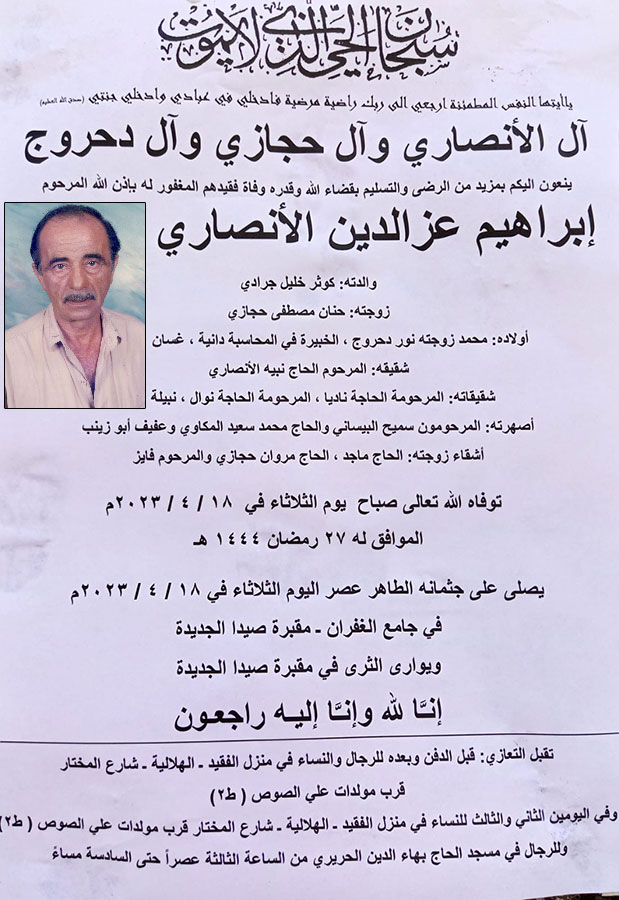 سبحان الحي الذي لا يموت
ياأيتها النفس المطمئنة ارجعي الى ربك راضية مرضية فادخلي في عبادي وادخلي جنتي (صدق الله العظيم)
آل الأنصاري وآل حجازي وآل دحروج
ينعون اليكم بمزيد من الرضى والتسليم بقضاء الله وقدره وفاة فقيدهم المغفور له بإذن الله المرحوم
إبراهيم عزالدين الأنصاري
والدته: كوثر خليل جرادي
زوجته: حنان مصطفى حجازي
أولاده: محمد زوجته نور دحروج ، الخبيرة في المحاسبة دانية ، غسان
شقيقه: المرحوم الحاج نبيه الأنصاري
شقيقاته: المرحومة الحاجة ناديا ، المرحومة الحاجة نوال ، نبيلة
أصهرته: المرحومون سميح البيساني والحاج محمد سعيد المكاوي وعفيف أبو زينب
أشقاء زوجته: الحاج ماجد ، الحاج مروان حجازي والمرحوم فايز
توفاه الله تعالى صباح يوم الثلاثاء في ١٨ / ٤ / ٢٠٢٣م
الموافق له ٢٧ رمضان ١٤٤٤ هـ
يصلى على جثمانه الطاهر عصر اليوم الثلاثاء في ١٨ / ٤ / ٢٠٢٣م
في جامع الغفران ـ مقبرة صيدا الجديدة
ويوارى الثرى في مقبرة صيدا الجديدة
إنَّا لله وإنَّا إليه راجعون
تقبل التعازي: قبل الدفن وبعده للرجال والنساء في منزل الفقيد ـ الهلالية ـ شارع المختار
قرب مولدات علي الصوص ( ط٢)
وفي اليومين الثاني والثالث للنساء في منزل الفقيد ـ الهلالية ـ شارع المختار قرب مولدات علي الصوص ( ط٢)
وللرجال في مسجد الحاج بهاء الدين الحريري من الساعة الثالثة عصراً حتى السادسة مساءً